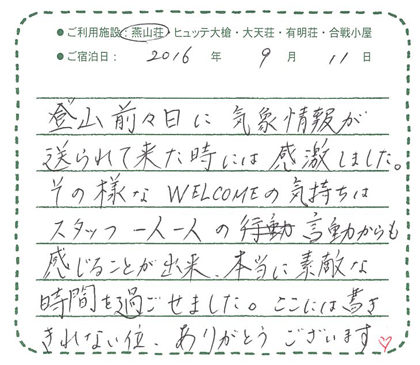 ●ご利用施設：燕山荘・ヒュッテ大槍・大天荘・有明荘・合戦小屋
●ご宿泊日： 2016 年 9 月 11 日
登山前々日に気象情報が
送られて来た時には感激しました。
その様なWELCOMEの気持ちは
スタッフ一人一人の行動言動からも
感じることが出来、本当に素敵な
時間を過ごせました。ここには書き
きれない位、ありがとうございます♡